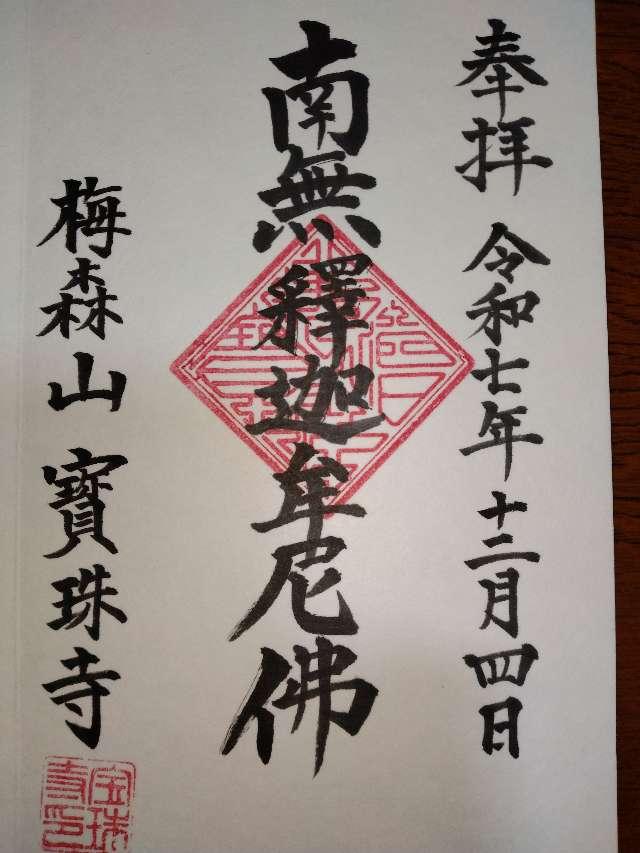 奉拝 令和七年十二月四日
南無釋迦牟尼佛
梅森山 寶珠寺
宝珠寺印